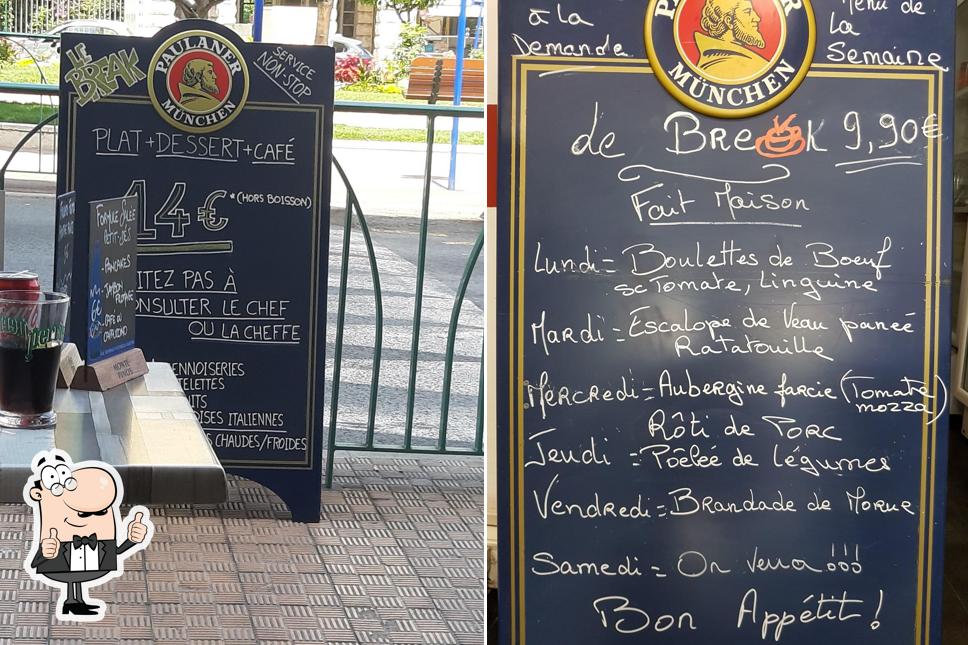 LE
BREAK
PAULANER
MÜNCHEN
SERVICE
NON-STOP
PLAT+DESSERT+CAFÉ
14€ *(HORS BOISSON)
ITEZ PAS À
ONSULTER LE CHEF
OU LA CHEFFE
ENNOISERIES
TELETTES
UITS
RISES ITALIENNES
S CHAUDES/FROIDES
PETIT-DÉJ
- PANCAKES
- JAMBON
FROMAGE
- CAFÉ OU
CAPUCCINO
MONTE
à la
Demande
Menu de
La
Semaine
MÜNCHEN
de Break 9,90€
Fait Maison
Lundi = Boulettes de Boeuf
sc Tomate, Linguine
Mardi = Escalope de Veau panée
Ratatouille
Mercredi = Aubergine farcie (Tomate
mozza)
Rôti de Porc
Jeudi = Poêlée de légumes
Vendredi = Brandade de Morue
Samedi = On verra !!!
Bon Appétit !